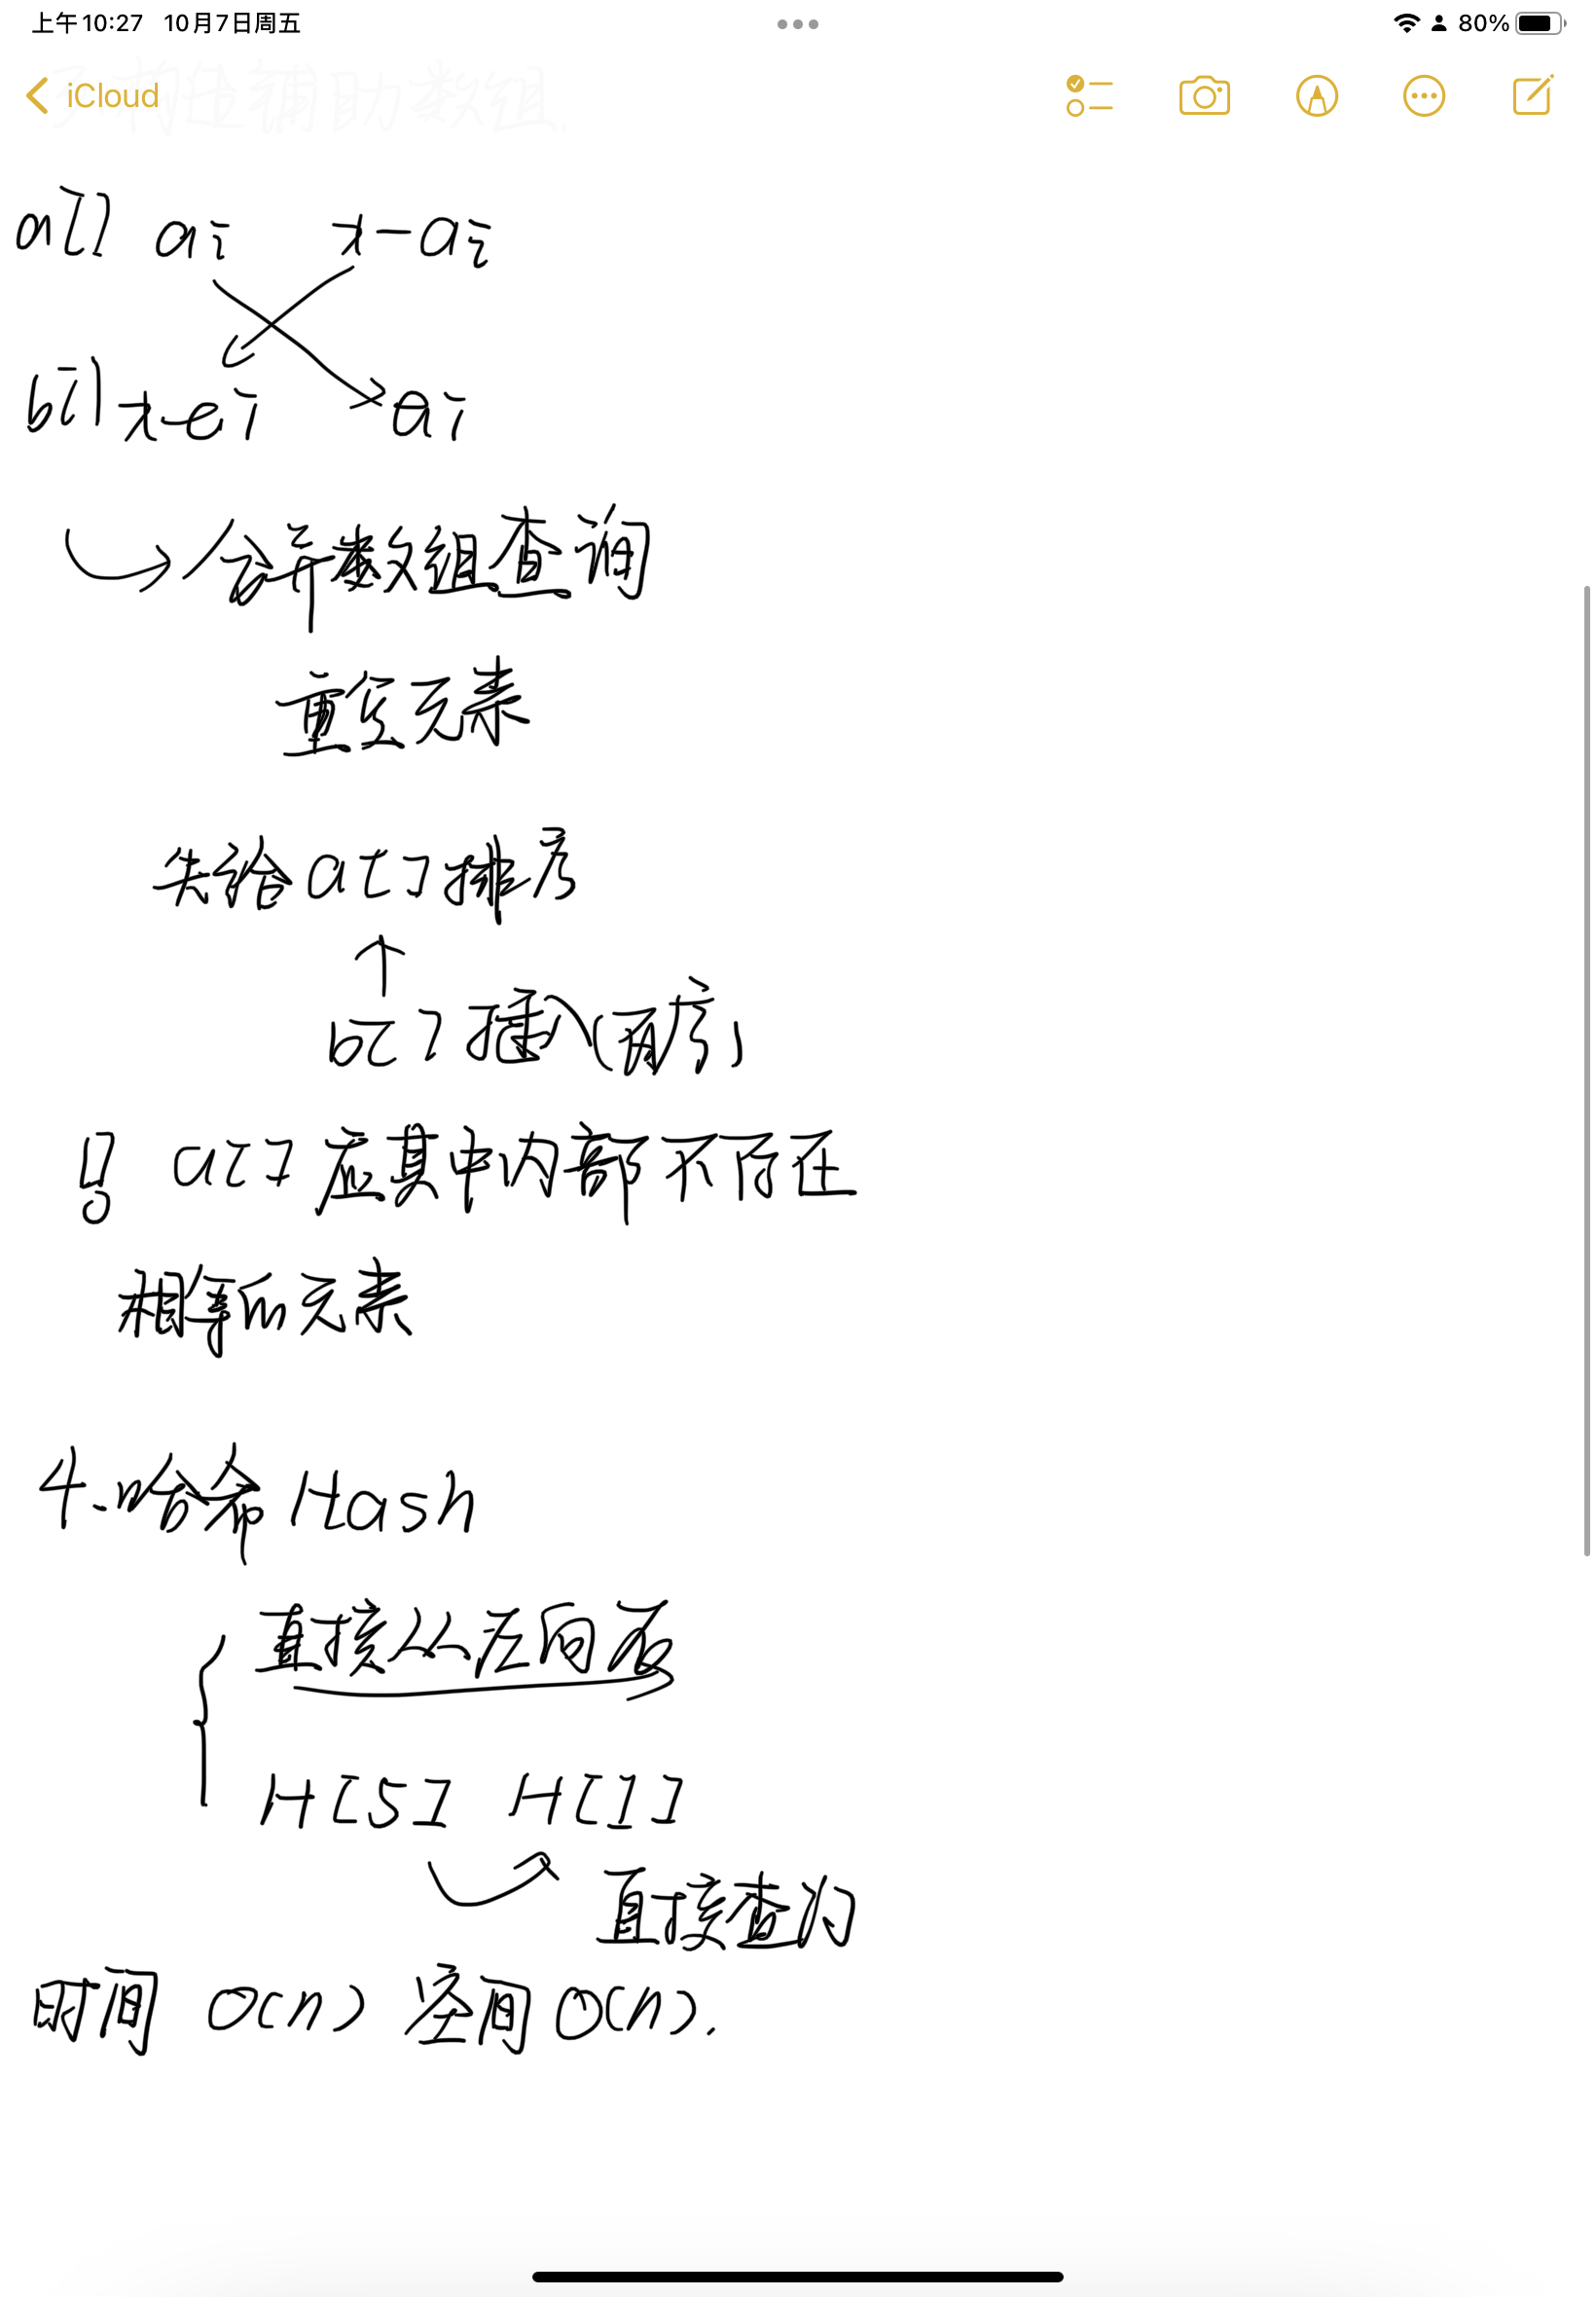 上午10:27 10月7日周五
80%
iCloud
构造辅助数组.
a[] ai x-ai
b[] x-ai ai
合并数组查询
重复元素
先给a[]排序
b[]插入(有序)
a[]应其中内部不存在
相等的元素
4.哈希Hash
直接从左向右
H[5] H[1]
直接查询
时间 O(n) 空间O(n).